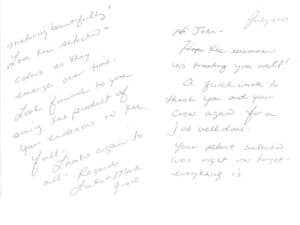 July
Hi John -
Hope the summer
is treating you well!
A quick note to
thank you and your
crew again for a
job well done.
Your plant selection
was right on target -
everything is
maturing beautifully!
Love the selected
colors as they
emerge over time.
Look forward to you
seeing the product of
your endeavors in the
fall.
Thanks again to
all - Regards